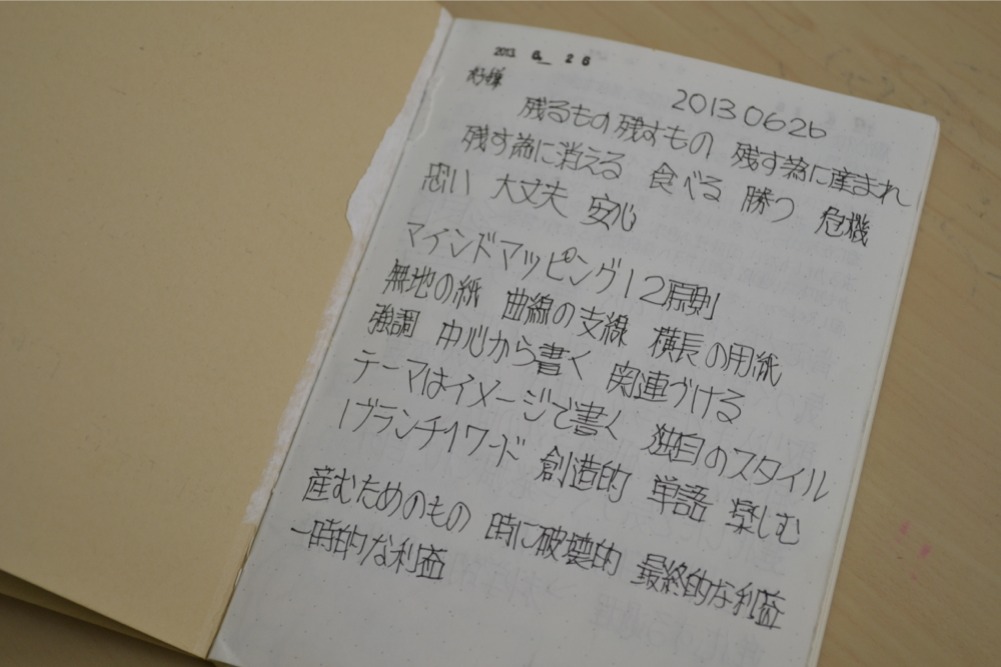 2013. 6. 26
20130626
残るもの 残すもの 残す為に産まれ
残す為に消える 食べる 勝つ 危機
思い 大丈夫 安心
マインドマッピング12原則
無地の紙 曲線の支線 横長の用紙
強調 中心から書く 関連づける
テーマはイメージで書く 独自のスタイル
1ブランチ1ワード 創造的 単語 楽しむ
産むためのもの 時に破壊的 最終的な利益
一時的な利益